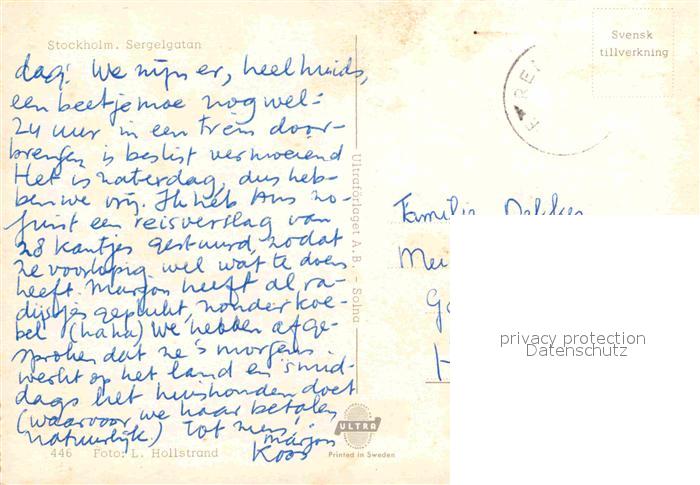 Stockholm. Sergelgatan
dag! We zijn er, heelhuids,
een beetje moe nog wel:
24 uur in een trein door-
brengen is beslist vermoeiend
Het is zaterdag, dus heb-
ben we vrij. Ik heb Ans zo-
juist een reisverslag van
28 kantjes gestuurd, zodat
ze voorlopig wel wat te doen
heeft. Marjon heeft al ra-
dijsjes geplukt, zonder koe-
bel (haha) We hebben afge-
sproken dat ze 's morgens
werkt op het land en 's mid-
dags het huishouden doet
(waarvoor we haar betalen
natuurlijk.) Tot ziens!
Marjon
Koos
446 Foto: L. Hollstrand
Ultraförlaget A.B. - Solna
ULTRA
Printed in Sweden
Svensk
tillverkning
Familie Dekker
privacy protection
Datenschutz